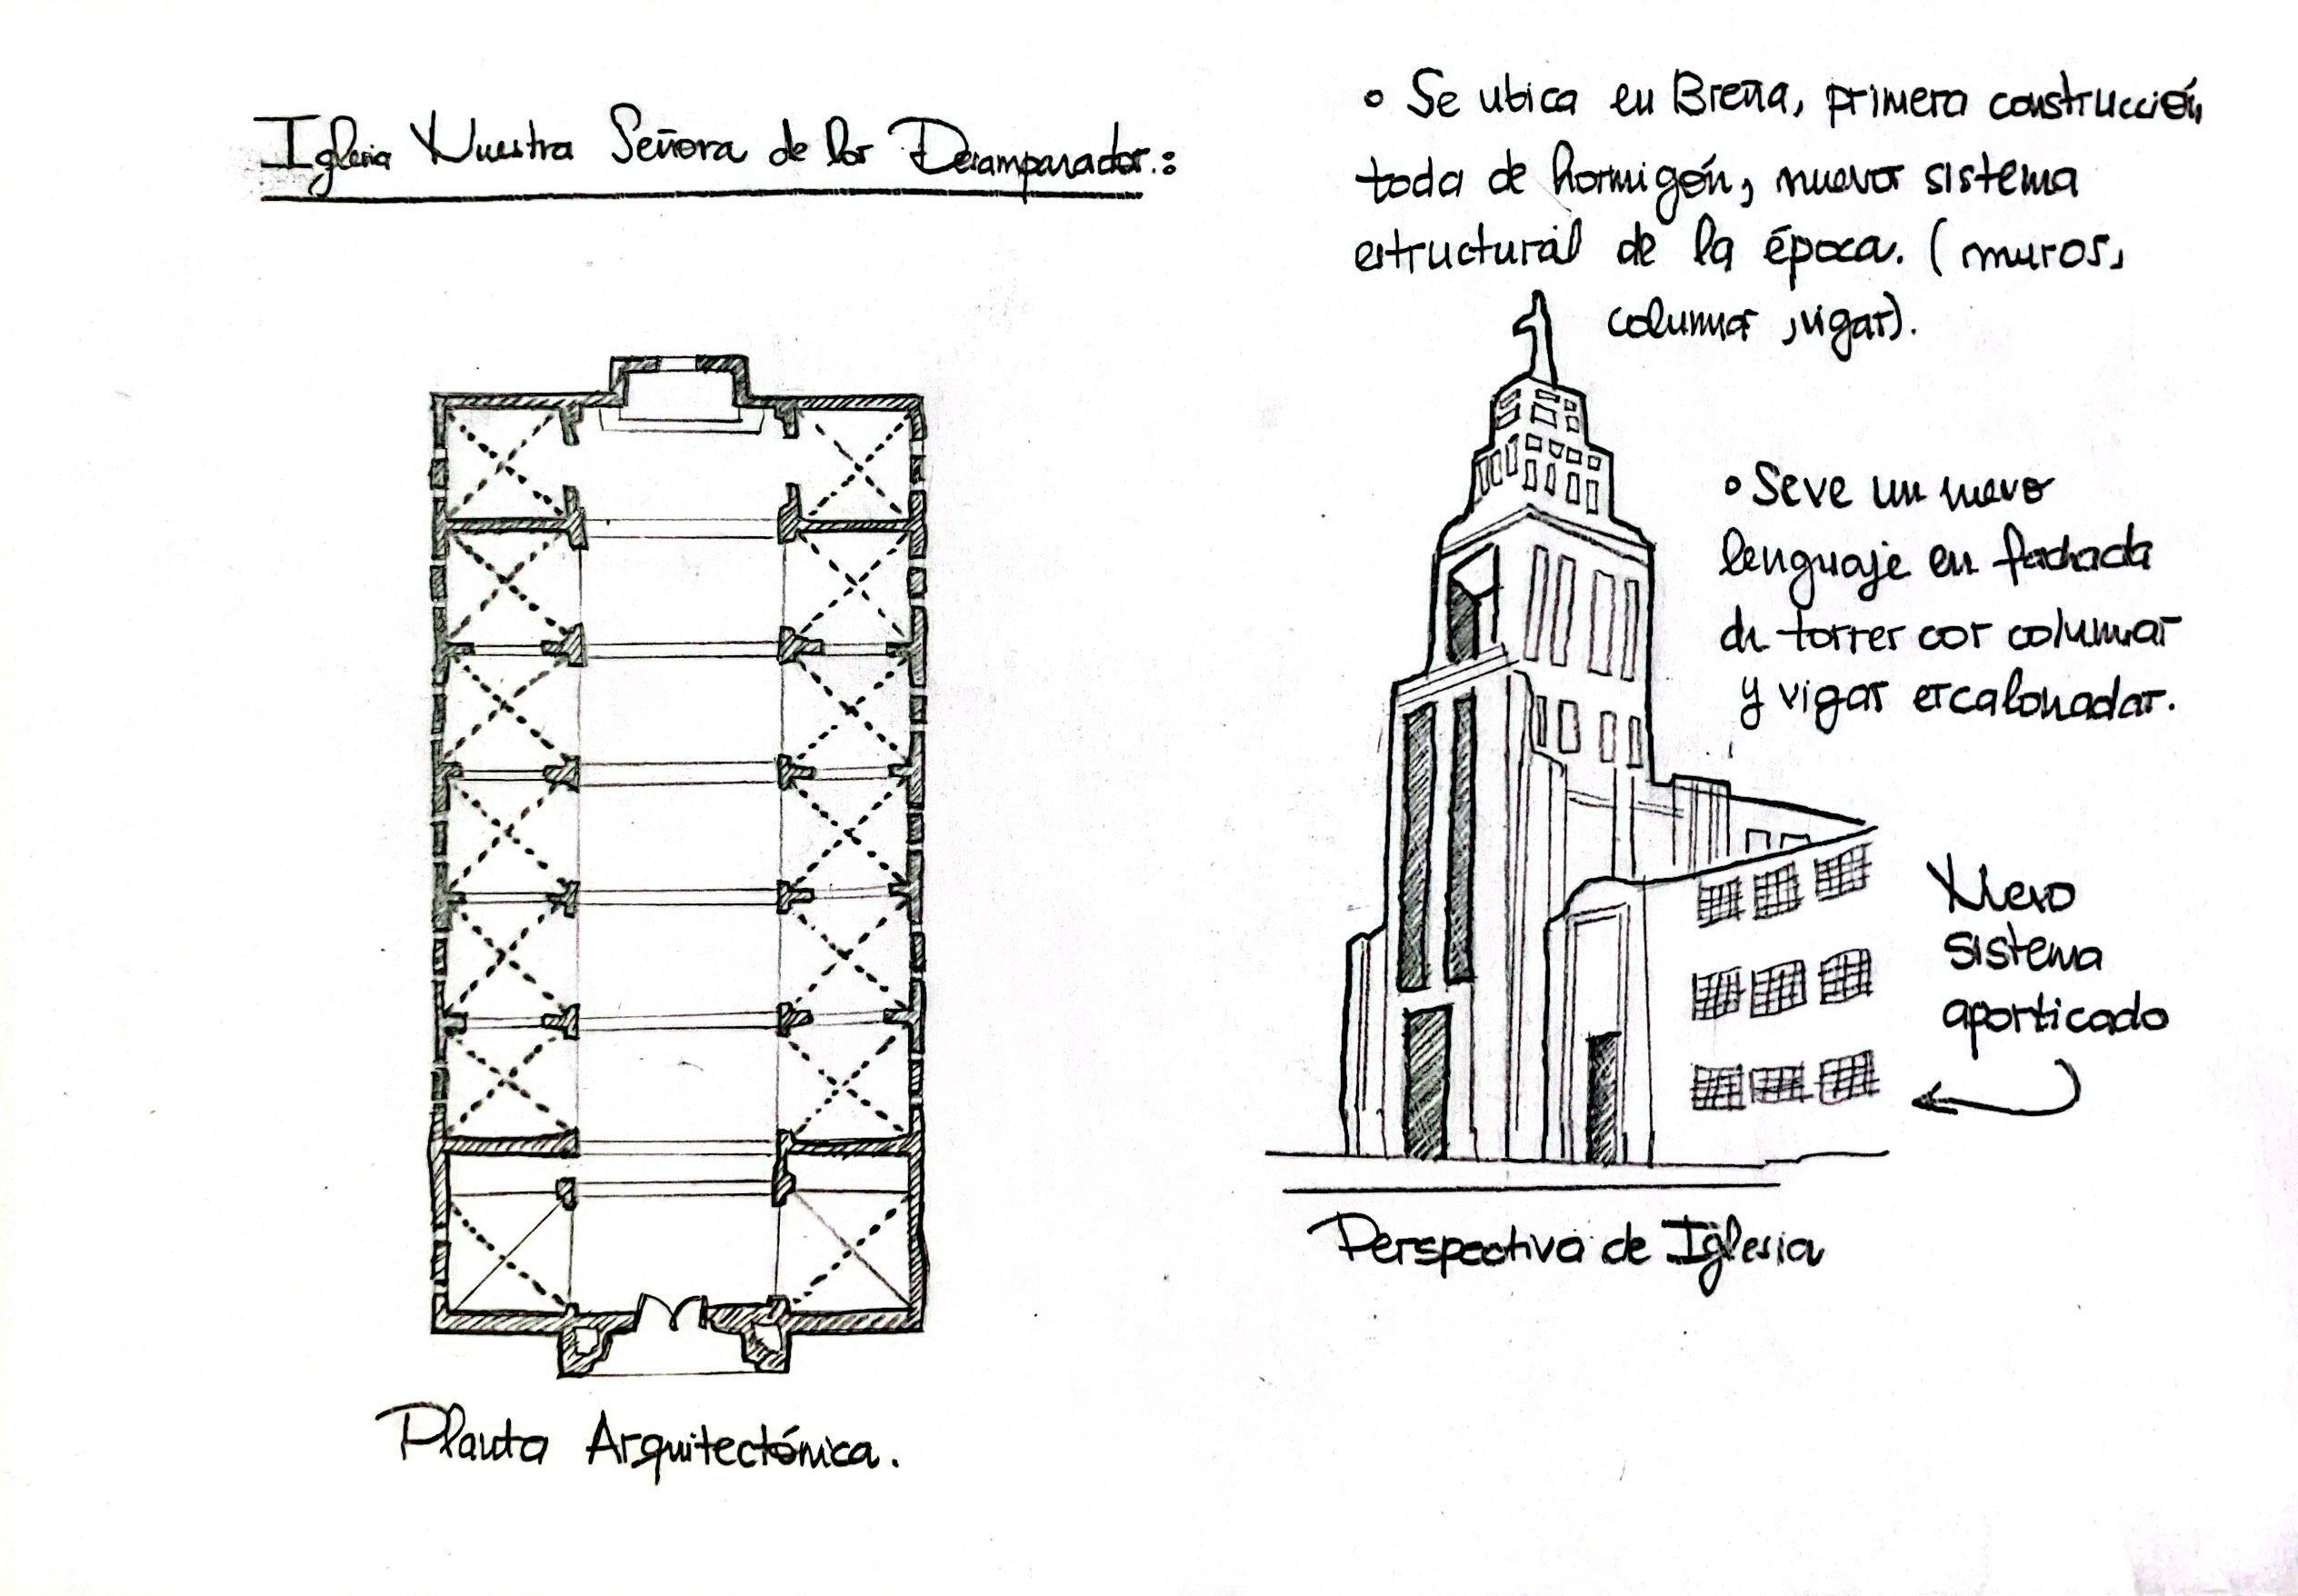 Iglesia Nuestra Señora de los Desamparados.:
• Se ubica en Breña, primera construcción
toda de hormigón, nuevos sistema
estructural de la época. (muros,
columnas, vigas).
• Se ve un nuevo
lenguaje en fachada
de torres con columnas
y vigas escalonadas.
Nuevo
sistema
aporticado
Perspectiva de Iglesia
Planta Arquitectónica.